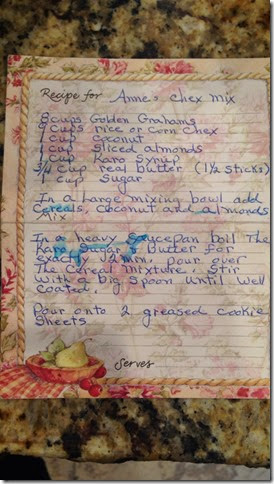 Recipe for Anne's Chex Mix
8 cups Golden Grahams
cups rice or corn Chex
1 cup coconut
1 cup sliced almonds
1 cup Karo Syrup
3/4 cup real butter (1 1/2 sticks)
1 cup Sugar
In a large mixing bowl add
Cereals, Coconut and almonds
Mix
In a heavy Saucepan boil The
Karo Sugar & Butter for
exactly min, pour over
The Cereal mixture. Stir
with a big spoon until well
coated.
Pour onto 2 greased cookie
Sheets
Serves